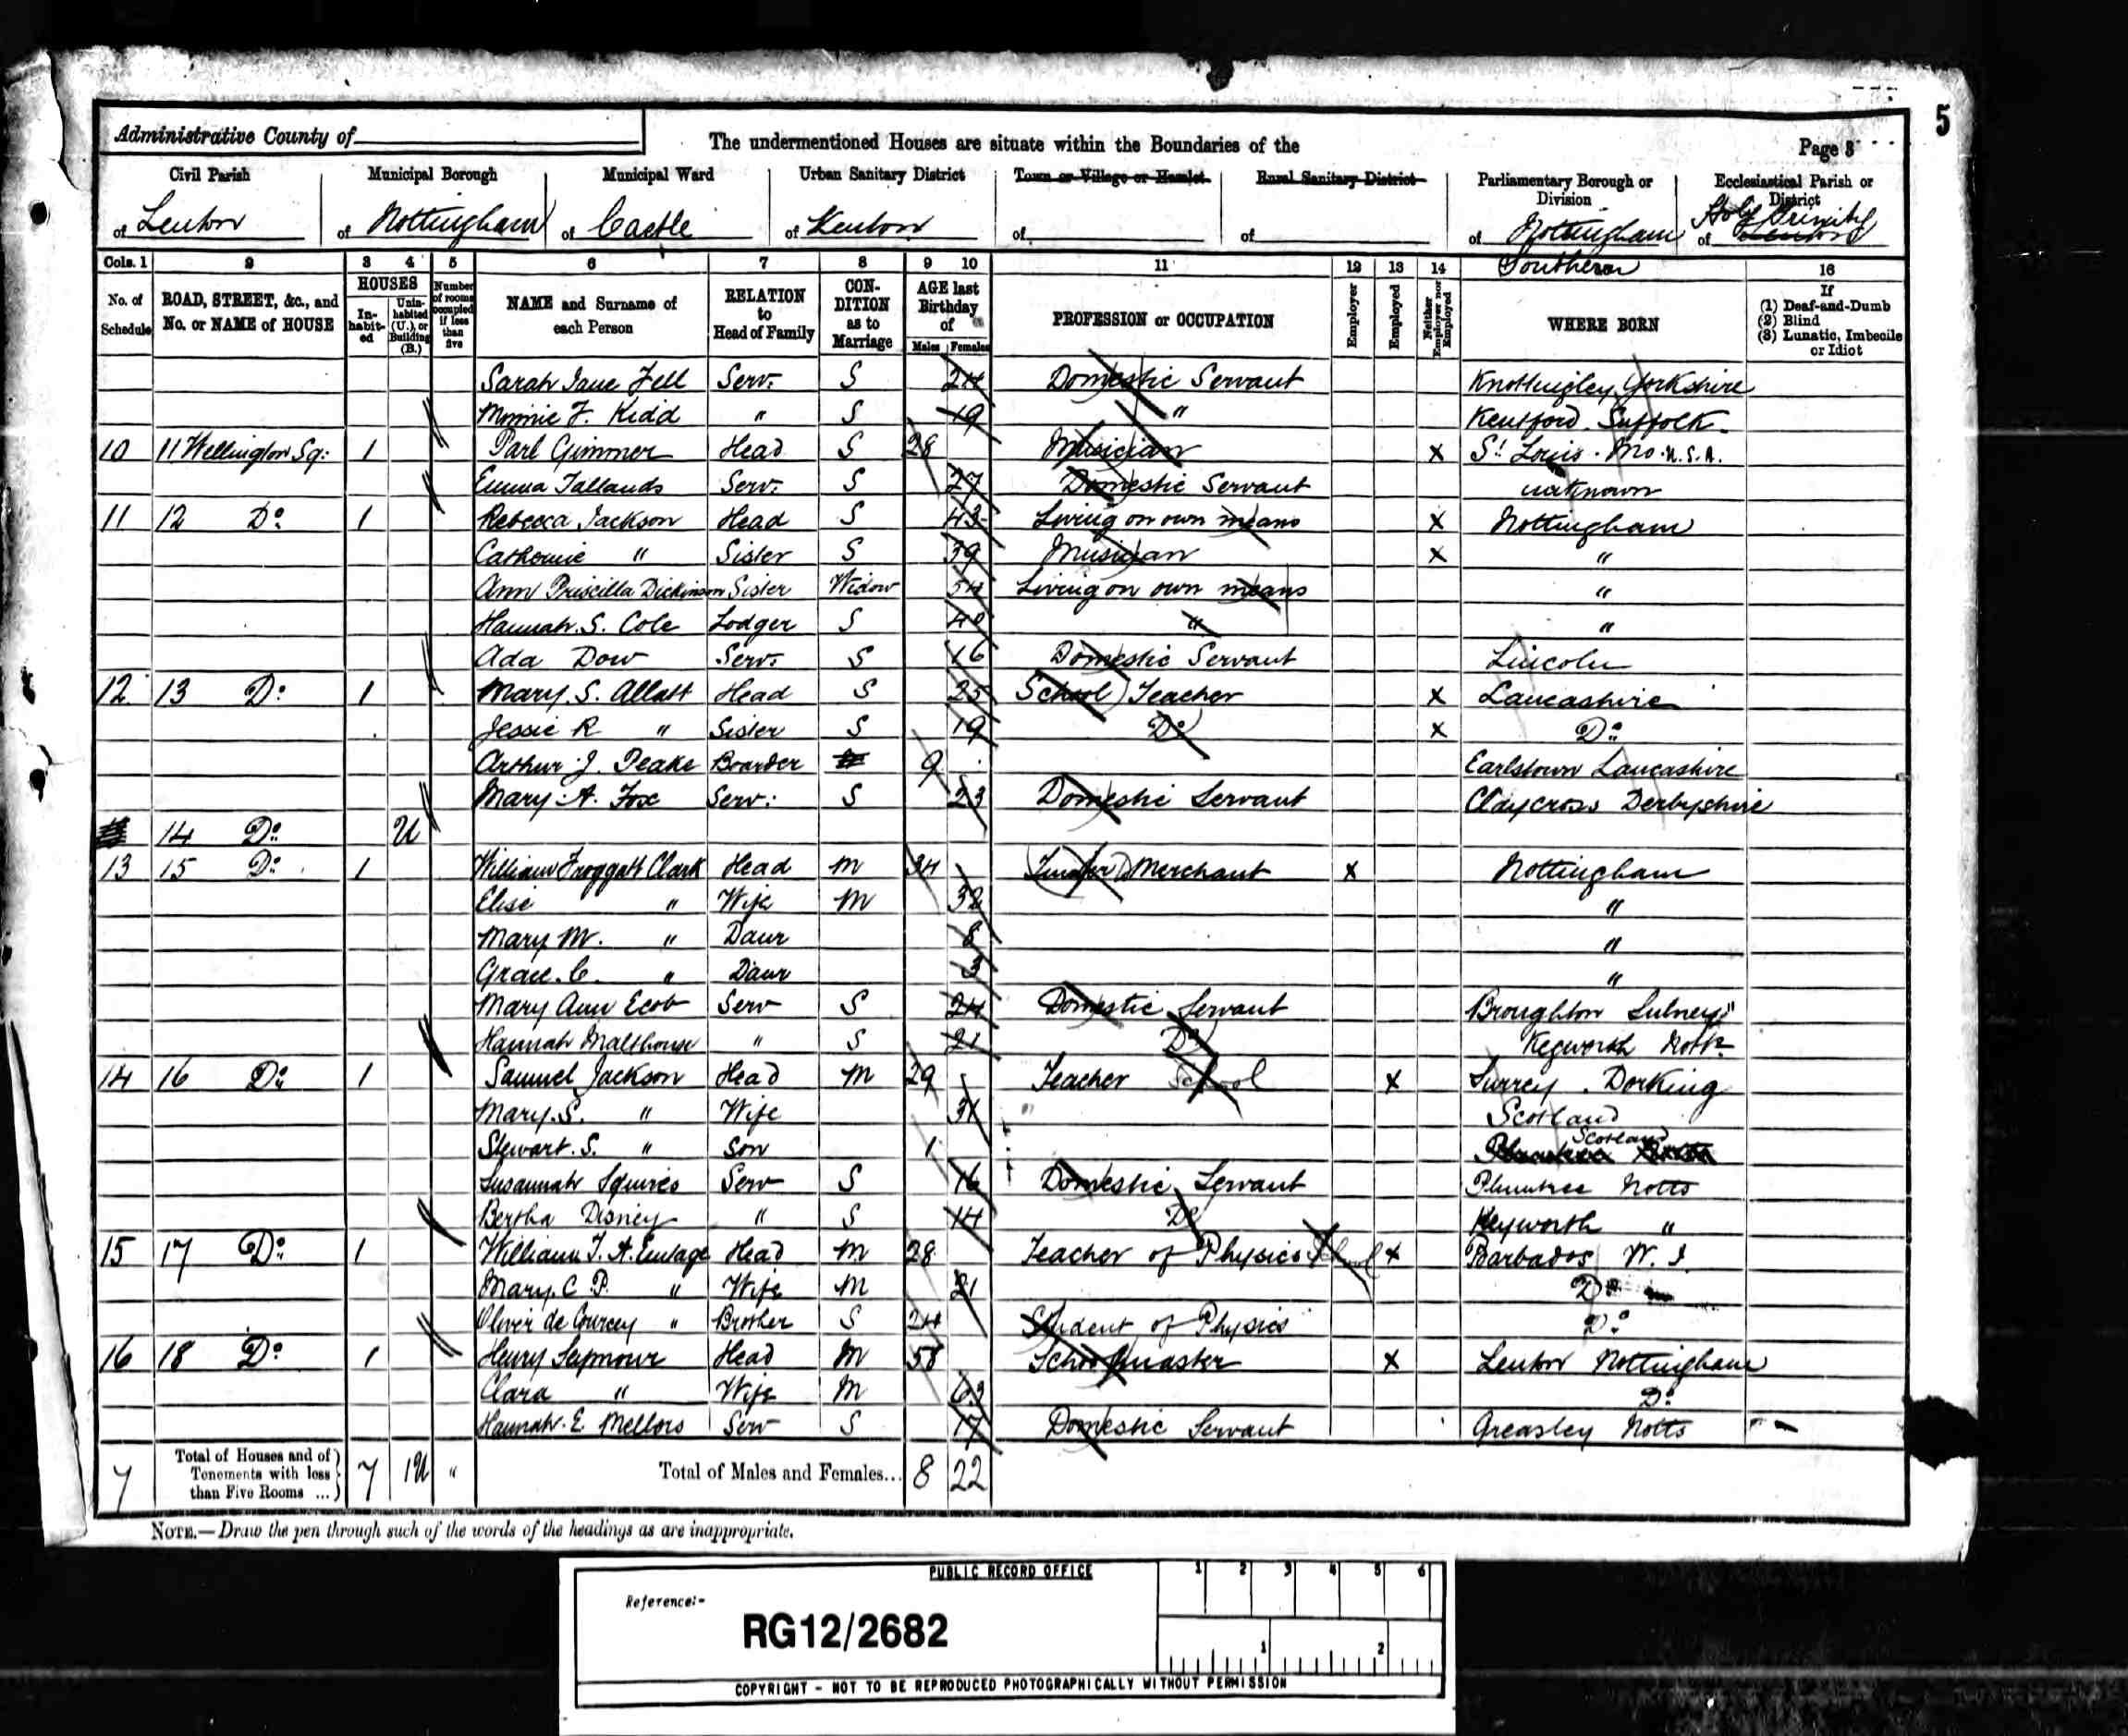 5
Administrative County of
The undermentioned Houses are situate within the Boundaries of the
Page 3
Civil Parish of Lenton
Municipal Borough of Nottingham
Municipal Ward of Castle
Urban Sanitary District of Lenton
Town or Village or Hamlet of
Rural Sanitary District of
Parliamentary Borough or Division of Nottingham Southern
Ecclesiastical Parish or District of Holy Trinity Lenton
Cols. 1 2 3 4 5 6 7 8 9 10 11 12 13 14 16
No. of Schedule
ROAD, STREET, &c., and No. or NAME of HOUSE
HOUSES
In-habit-ed
Unin-habited (U.), or Building (B.)
Number of rooms occupied if less than five
NAME and Surname of each Person
RELATION to Head of Family
CON-DITION as to Marriage
AGE last Birthday of
Males Females
PROFESSION or OCCUPATION
Employer
Employed
Neither Employer nor Employed
WHERE BORN
If (1) Deaf-and-Dumb (2) Blind (3) Lunatic, Imbecile or Idiot
Sarah Jane Fell Serv. S 24 Domestic Servant Knottingley Yorkshire
Minnie F. Kidd " S 19 " Kentford Suffolk
10 11 Wellington Sq: 1 Parl Gimmer Head S 28 Musician x St Louis. Mo. U.S.A.
Emma Tallands Serv. S 27 Domestic Servant unknown
11 12 Do 1 Rebecca Jackson Head S 43 Living on own means x Nottingham
Catherine " Sister S 39 Musician x "
Ann Priscilla Dickinson Sister Widow 54 Living on own means "
Hannah. S. Cole Lodger S 40 " "
Ada Dow Serv. S 16 Domestic Servant Lincoln
12 13 Do 1 Mary. S. Allatt Head S 25 School Teacher x Lancashire
Jessie R " Sister S 19 Do x Do
Arthur J. Peake Boarder 9 Earlstown Lancashire
Mary. A. Fox Serv: S 23 Domestic Servant Claycross Derbyshire
14 Do U
13 15 Do 1 William Froggatt Clark Head M 34 Timber Merchant x Nottingham
Elise " Wife M 32 "
Mary M. " Daur 8 "
Grace. C. " Daur 3 "
Mary Ann Ecob Serv S 24 Domestic Servant Broughton Sulney "
Hannah Malthouse " S 21 Do Kegworth Notts
14 16 Do 1 Samuel Jackson Head M 29 Teacher School x Surrey. Dorking
Mary. S. " Wife 31 Scotland
Stewart. S. " Son 1 Scotland
Susannah Squires Serv S 16 Domestic Servant Plumtree Notts
Bertha Disney " S 14 Do Keyworth "
15 17 Do 1 William T. A. Emtage Head M 28 Teacher of Physics School x Barbados W. I.
Mary. C. P. " Wife M 21 Do
Oliver de Courcey " Brother S 24 Student of Physics Do
16 18 Do 1 Henry Seymour Head M 58 Schoolmaster x Lenton Nottingham
Clara " Wife M 63 Do
Hannah. E. Mellors Serv S 17 Domestic Servant Greasley Notts
7 Total of Houses and of Tenements with less than Five Rooms ... 7 1U " Total of Males and Females... 8 22
NOTE.—Draw the pen through such of the words of the headings as are inappropriate.
PUBLIC RECORD OFFICE
1 2 3 4 5 6
Reference:-
RG12/2682
1 2
COPYRIGHT - NOT TO BE REPRODUCED PHOTOGRAPHICALLY WITHOUT PERMISSION